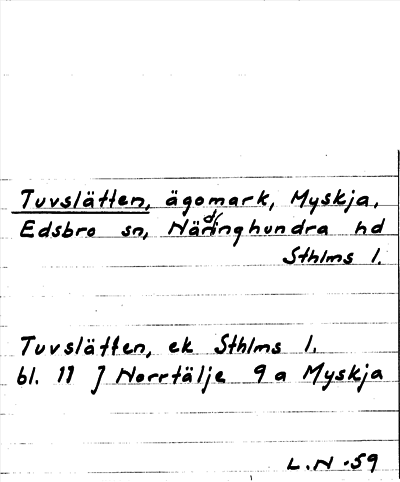 Tuvslätten, ägomark, Myskja,
Edsbro sn, Närdinghundra hd
Sthlms l.
Tuvslätten, ek Sthlms l.
bl. 11 J Norrtälje 9 a Myskja
L.N -59